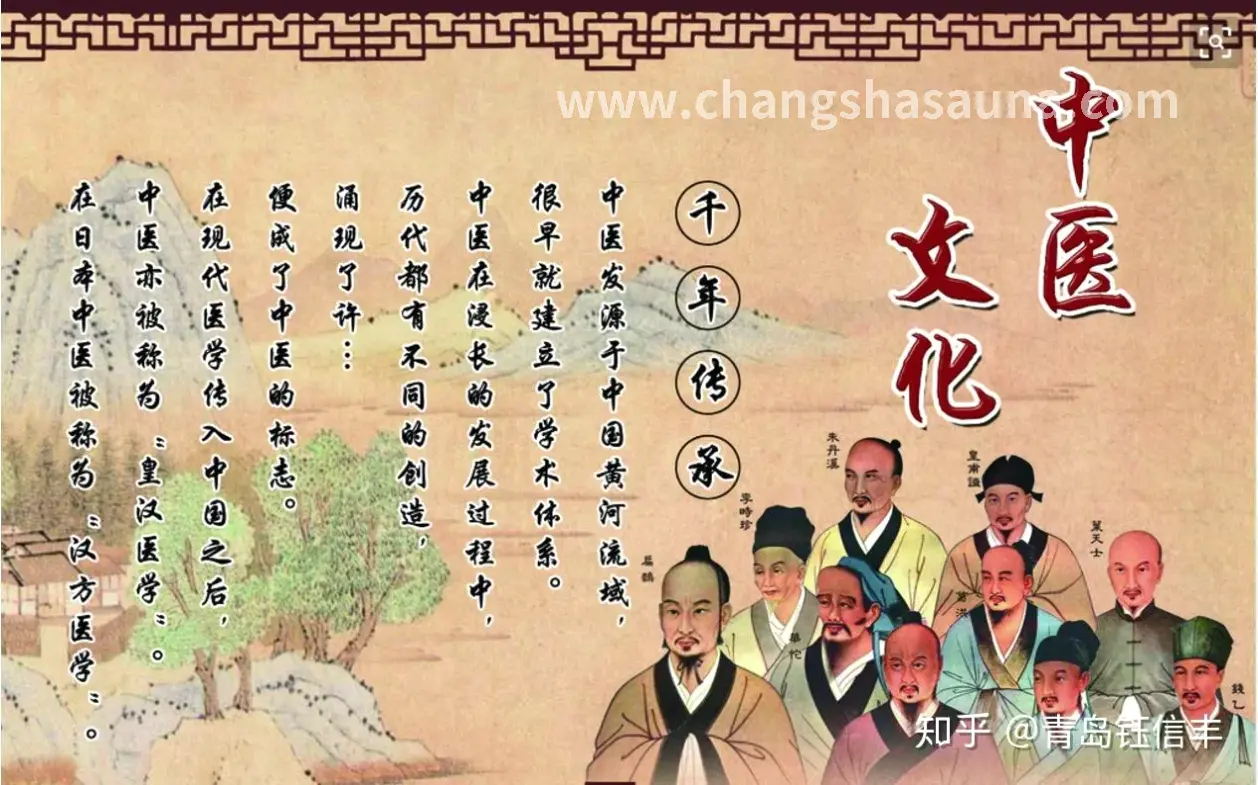 www.changshasauna.com
中医
文化
千年传承
中医发源于中国黄河流域，
很早就建立了学术体系。
中医在漫长的发展过程中，
历代都有不同的创造，
涌现了许…
便成了中医的标志。
在现代医学传入中国之后，
中医亦被称为“皇汉医学”。
在日本中医被称为“汉方医学”。
朱丹溪
皇甫謐
李時珍
葉天士
扁鵲
葛洪
華佗
錢乙
知乎 @青岛钰信丰